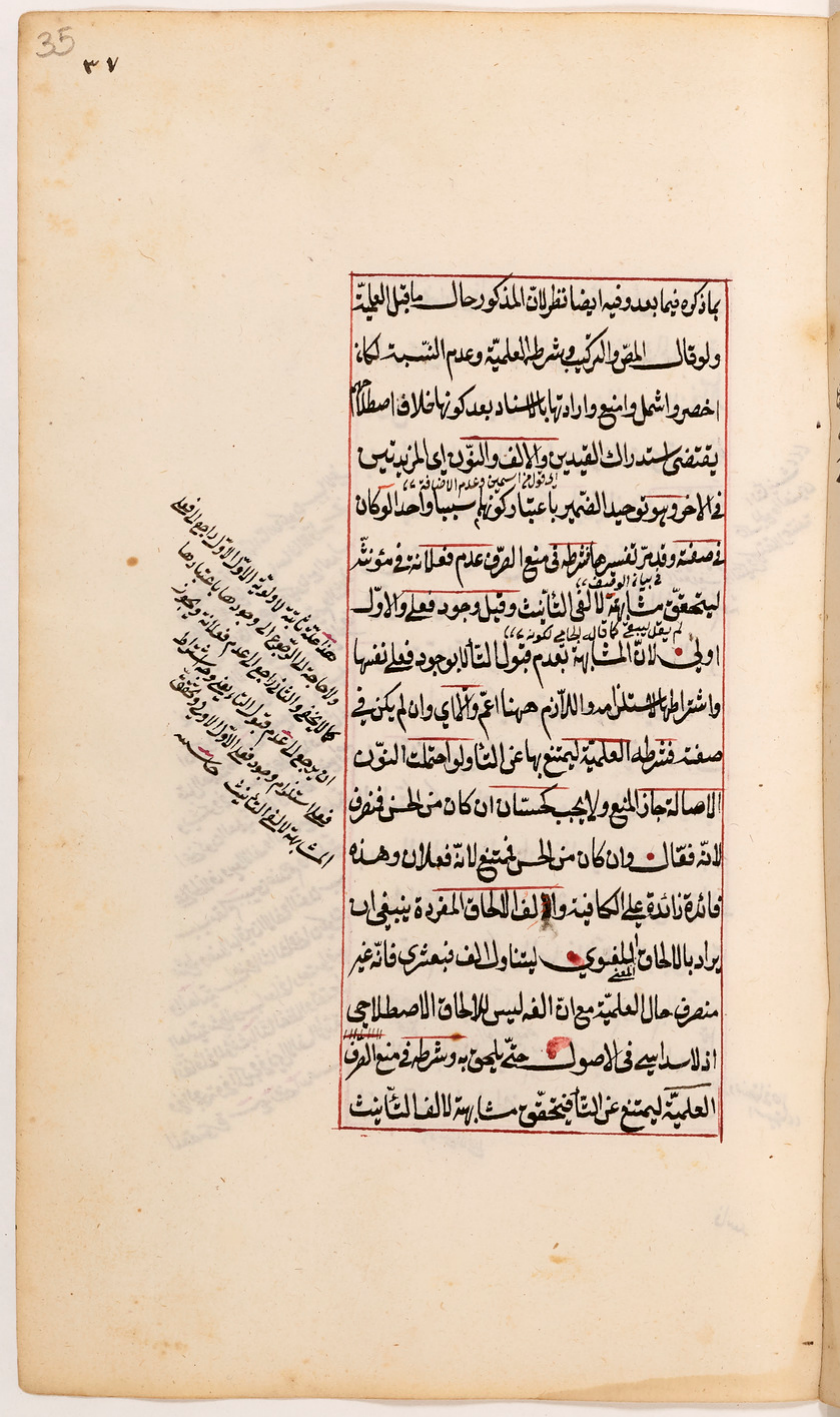 35
٣٧
بما ذكره فيما بعد وفيه ايضا نظر لان المذكور حال ما قبل العلميّة
ولو قال المصّ والتركيب وشرطه العلميّة وعدم النّسبة لكان
اخصر واشمل وامنع وارادتها بالاسناد بعد كونها خلاف اصطلاحهم
يقتضى استدراك القيدين والالف والنّون اى المزيدتين
اذ قوله من اسمين وعدم الاضافة
فى الاخر وهو توحيد الضمير باعتبار كونهما سببا واحدا لو كان
فى صفة وقد مرّ تفسيرها فشرطه فى منع الصّرف عدم فعلانة فى مؤنثه
فى بيانه الوصف
ليتحقّق مشابهته لالفى التّأنيث وقيل وجود فعلى والاوّل
لم يقل ينبغى كما قاله الجامى لكونه
اولى لانّ المشابهة بعدم قبول التّا لا بوجود فعلى نفسها
واشتراطها لاستلزامه واللازم ههنا اعمّ والا اى وان لم يكن فى
صفة فشرطه العلميّة ليمتنع بها عن التّا ولو احتملت النّون
الاصالة جاز المنع ولا يجب كحسّان ان كان من الحسن فمنصرف
لانّه فعّال وان كان من الحسّ فممتنع لانّه فعلان وهذه
فائدة زائدة على الكافية والالف الالحاق المفردة ينبغى ان
يراد بالالحاق اللغوي ليتناول الف قبعثرى فانّه غير
منصرف حال العلميّة مع انّ الفه ليس للالحاق الاصطلاحى
اذ لا سداسى فى الاصول حتّى يلحق به وشرطه فى منع الصّرف
العلميّة ليمتنع عن التّا فيتحقّق مشابهته لالف التّأنيث
هذا علة ثانية لاولويّة الاوّل الاوّل راجع الى فعلى
ولا حاجة الى الرّجوع الى وجودها باعتبارها
كما لا يخفى والثانى راجع الى عدم فعلانة ويجوز
ان يرجع الى عدم قبول التاء يعنى وجه اشتراط
فعلى استلزام وجود فعلى الاوّل
المشابهة لالفى التّأنيث